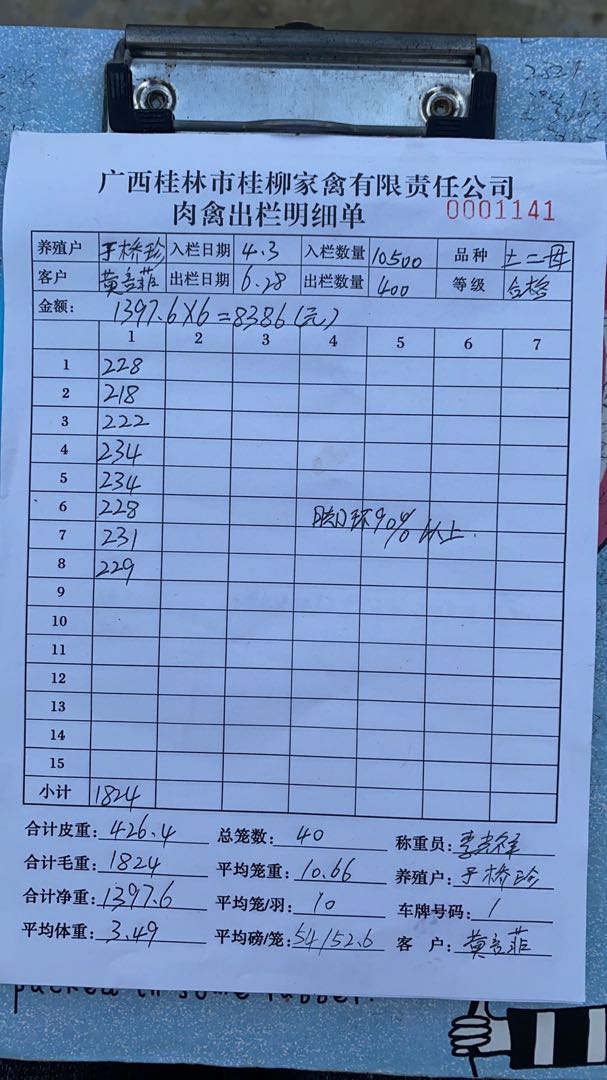 广西桂林市桂柳家禽有限责任公司
肉禽出栏明细单 0001141
养殖户 于桥珍 入栏日期 4.3 入栏数量 10500 品种 土二母
客户 黄言菲 出栏日期 6.28 出栏数量 400 等级 合格
金额: 1397.6×6=8386(元)
1 2 3 4 5 6 7
1 228
2 218
3 222
4 234
5 234
6 228
90% 以上
7 231
8 229
9
10
11
12
13
14
15
小计 1824
合计皮重: 426.4 总笼数: 40 称重员:
合计毛重: 1824 平均笼重: 10.66 养殖户: 于桥珍
合计净重: 1397.6 平均笼/羽: 10 车牌号码: 1
平均体重: 3.49 平均磅/笼: 54/52.6 客 户: 黄言菲
packed in some rubber.